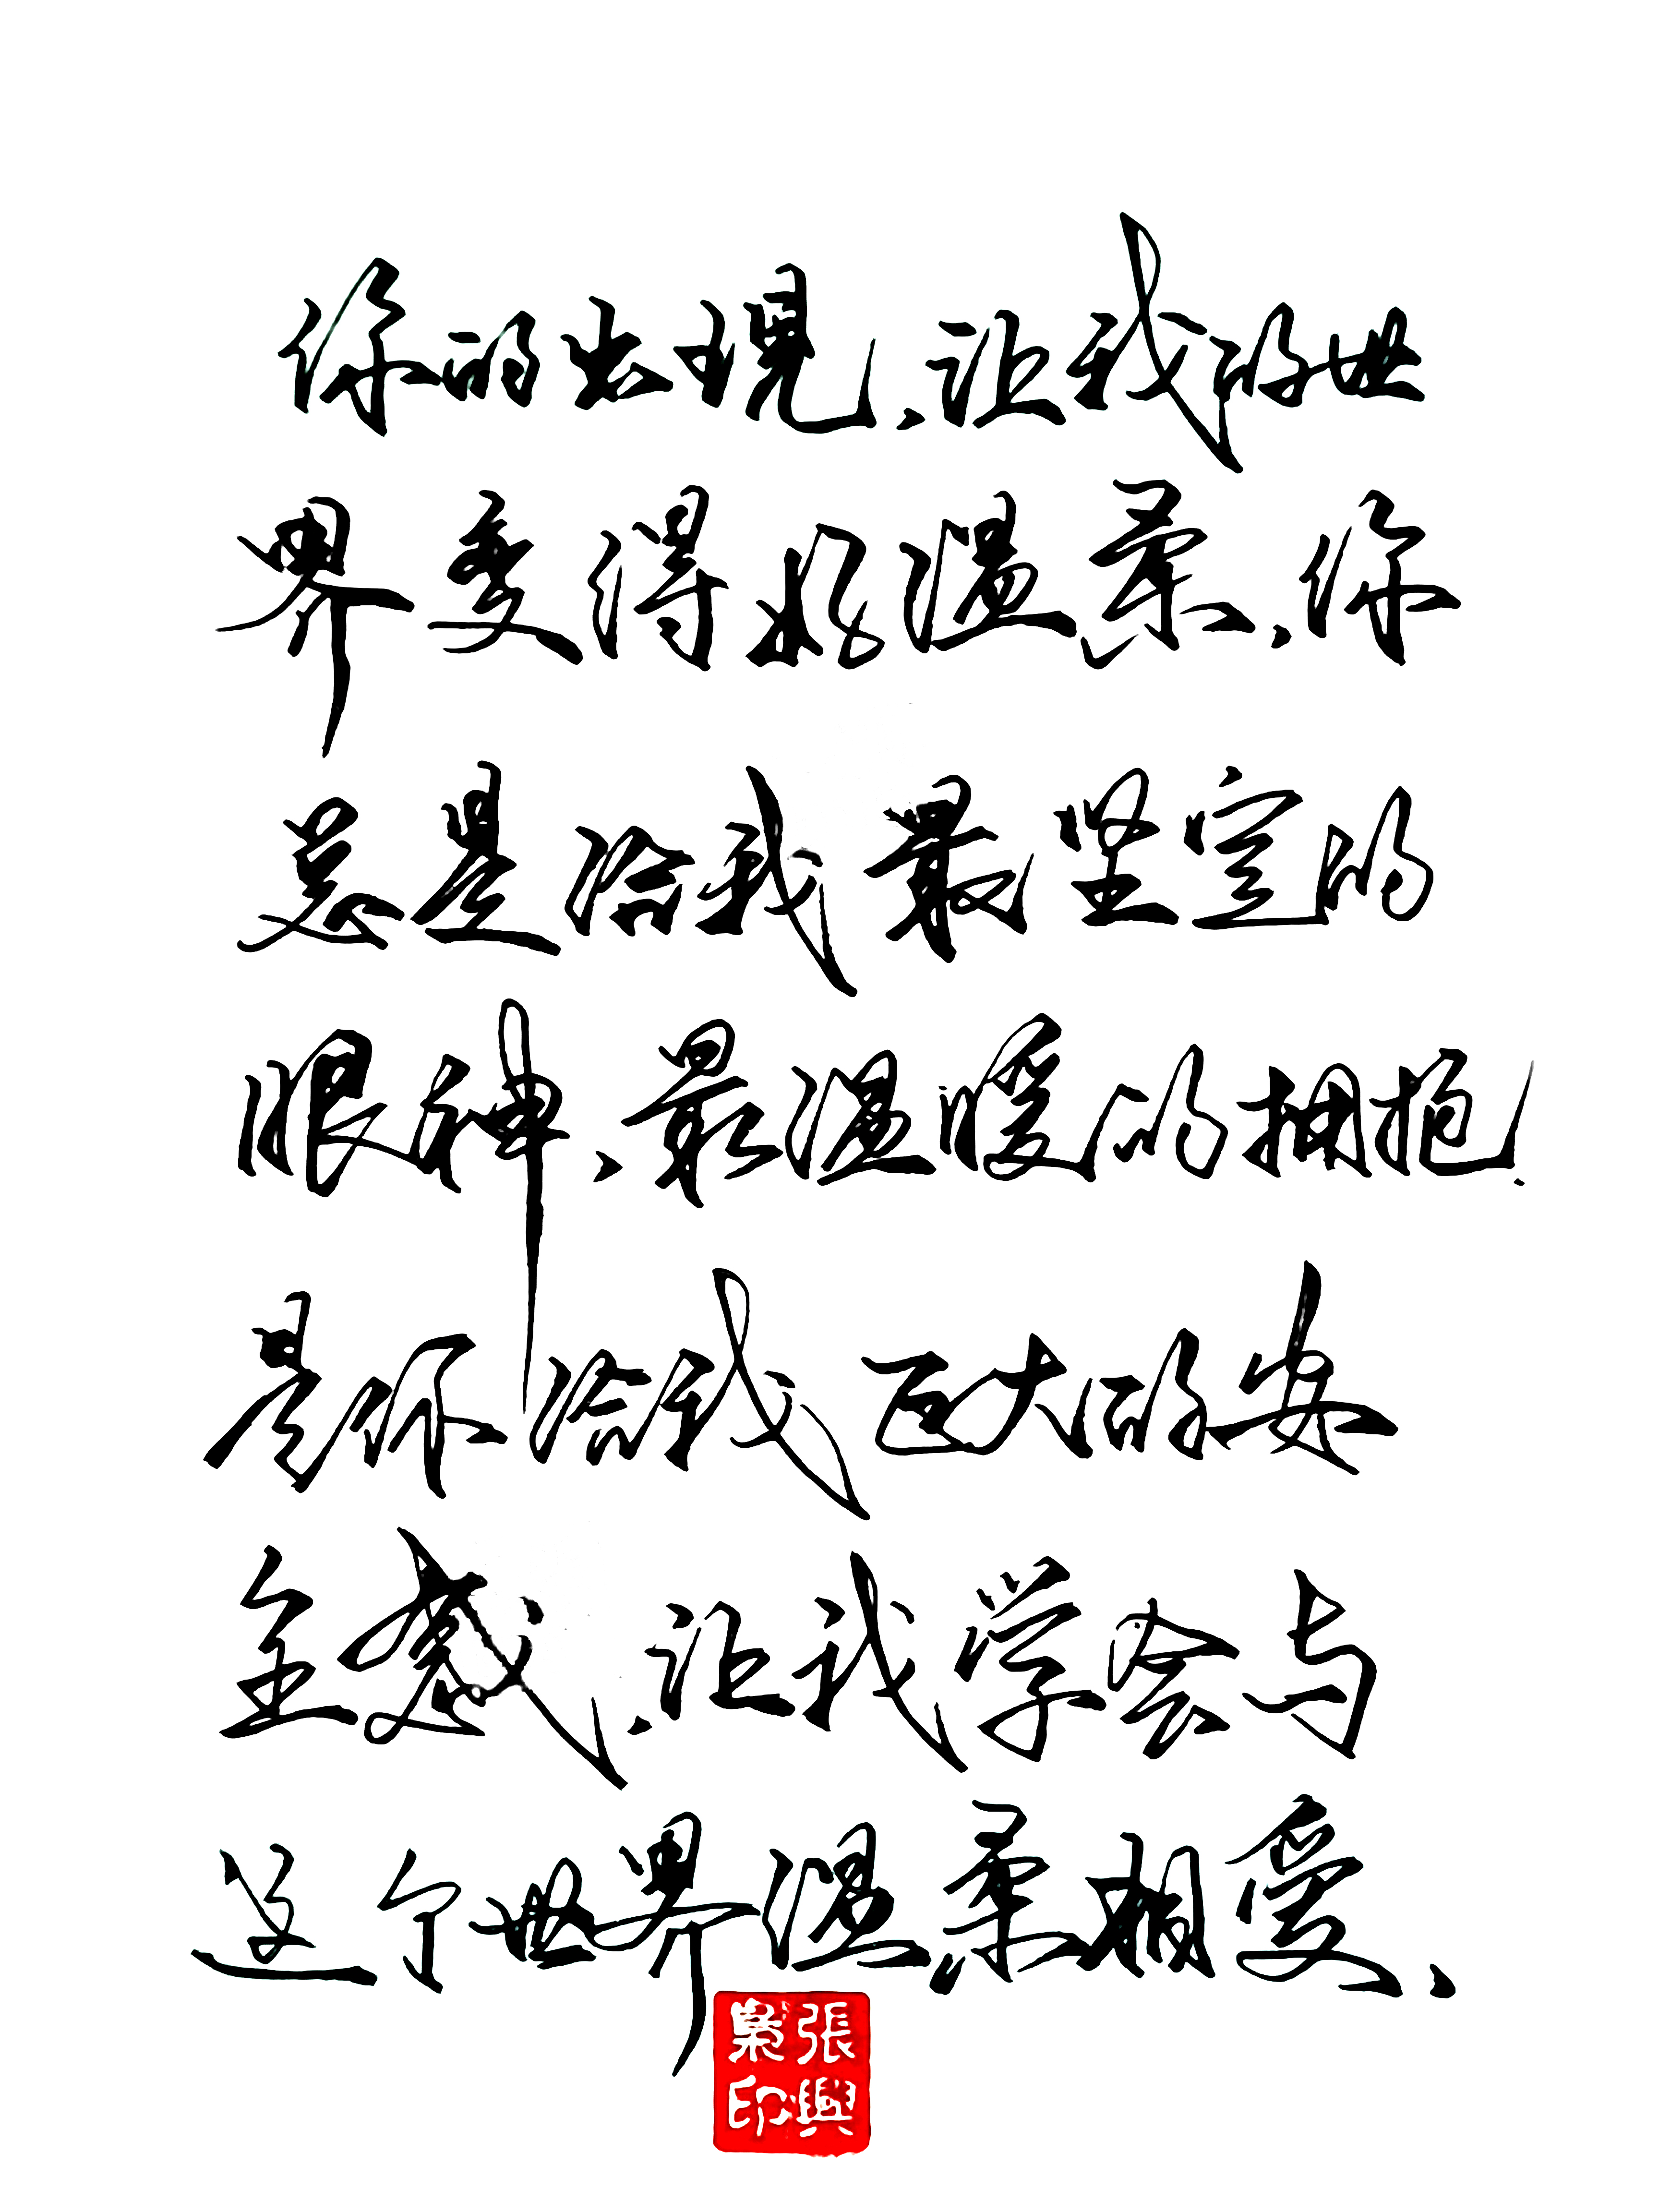 你的出现，让我的世
界变得如温柔，你
总是给我最坚定的
眼神、最温暖的拥抱！
是你给我百分百的安
全感，让我学会与
这个世界温柔相爱、
張興業印